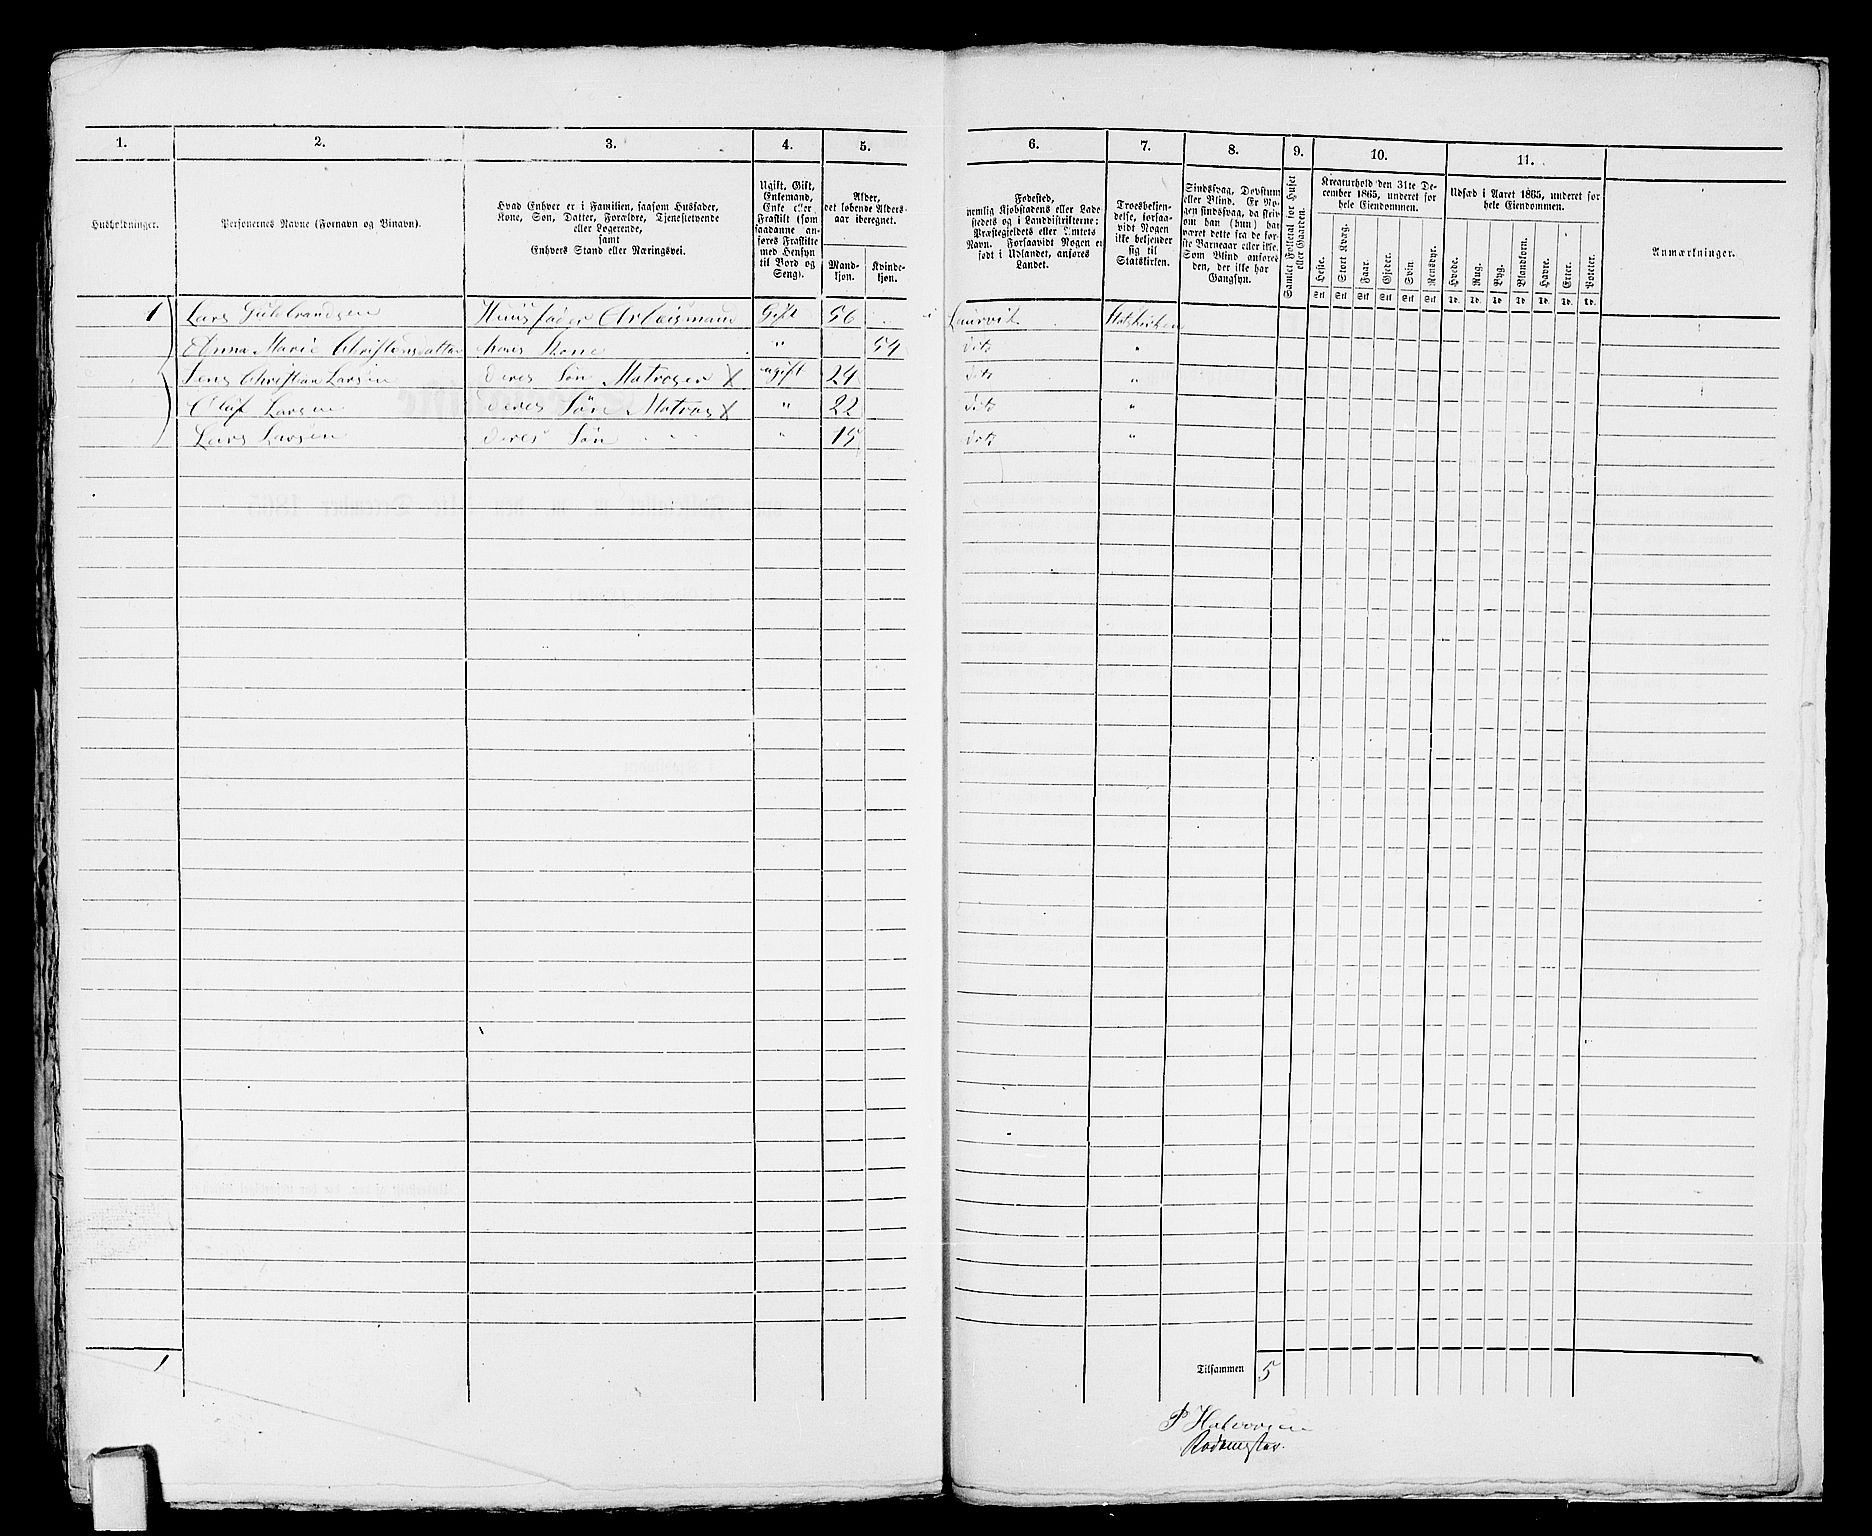 1. 2. 3. 4. 5. 6. 7. 8. 9. 10. 11.
Husholdninger.
Personernes Navne (Fornavn og Binavn).
Hvad Enhver er i Familien, saasom Husfader,
Kone, Søn, Datter, Forældre, Tjenestetyende
eller Logerende,
samt
Enhvers Stand eller Næringsvei.
Ugift, Gift,
Enkemand,
Enke eller
Fraskilt (som
saadanne an-
føres Fraskilte
med Hensyn
til Bord og
Seng).
Alder,
det løbende Alders-
aar iberegnet.
Mand-
kjøn.
Kvinde-
kjøn.
Fødested,
nemlig Kjøbstadens eller Lade-
stedets og i Landdistrikterne:
Præstegjeldets eller Amtets
Navn. Forsaavidt Nogen er
født i Udlandet, anføres
Landet.
Troesbekjen-
delse, forsaa-
vidt Nogen
ikke bekjender
sig til
Statskirken.
Sindssvag, Døvstum
eller Blind. Er No-
gen sindssvag, da skriv
om han (hun) har
været dette fra de før-
ste Barneaar eller ikke.
Som Blind anføres
den, der ikke har
Gangsyn.
Samlet Folketal for Huset
eller Gaarden.
Kreaturhold den 31te De-
cember 1865, underet for
hele Eiendommen.
Heste. Stort Kvæg. Faar. Gjeder. Svin. Rensdyr.
Stk Stk Stk Stk Stk Stk
Udsæd i Aaret 1865, underet for
hele Eiendommen.
Hvede. Rug. Byg. Blandkorn. Havre. Erter. Poteter.
Td. Td. Td. Td. Td. Td. Td.
Anmærkninger.
1 Lars Guldbrandsen Huusfader Arbeismand Gift 56 Laurvik Statskirken
Anna Marie Christensdatter hans Kone " 54 dito "
Jens Christian Larsen deres Søn Matroser X ugift 24 dito "
Olaf Larsen deres Søn Matros X " 22 dito "
Lars Larsen deres Søn " 15 dito "
1 Tilsammen 5
P Halvorsen
Rodemester.